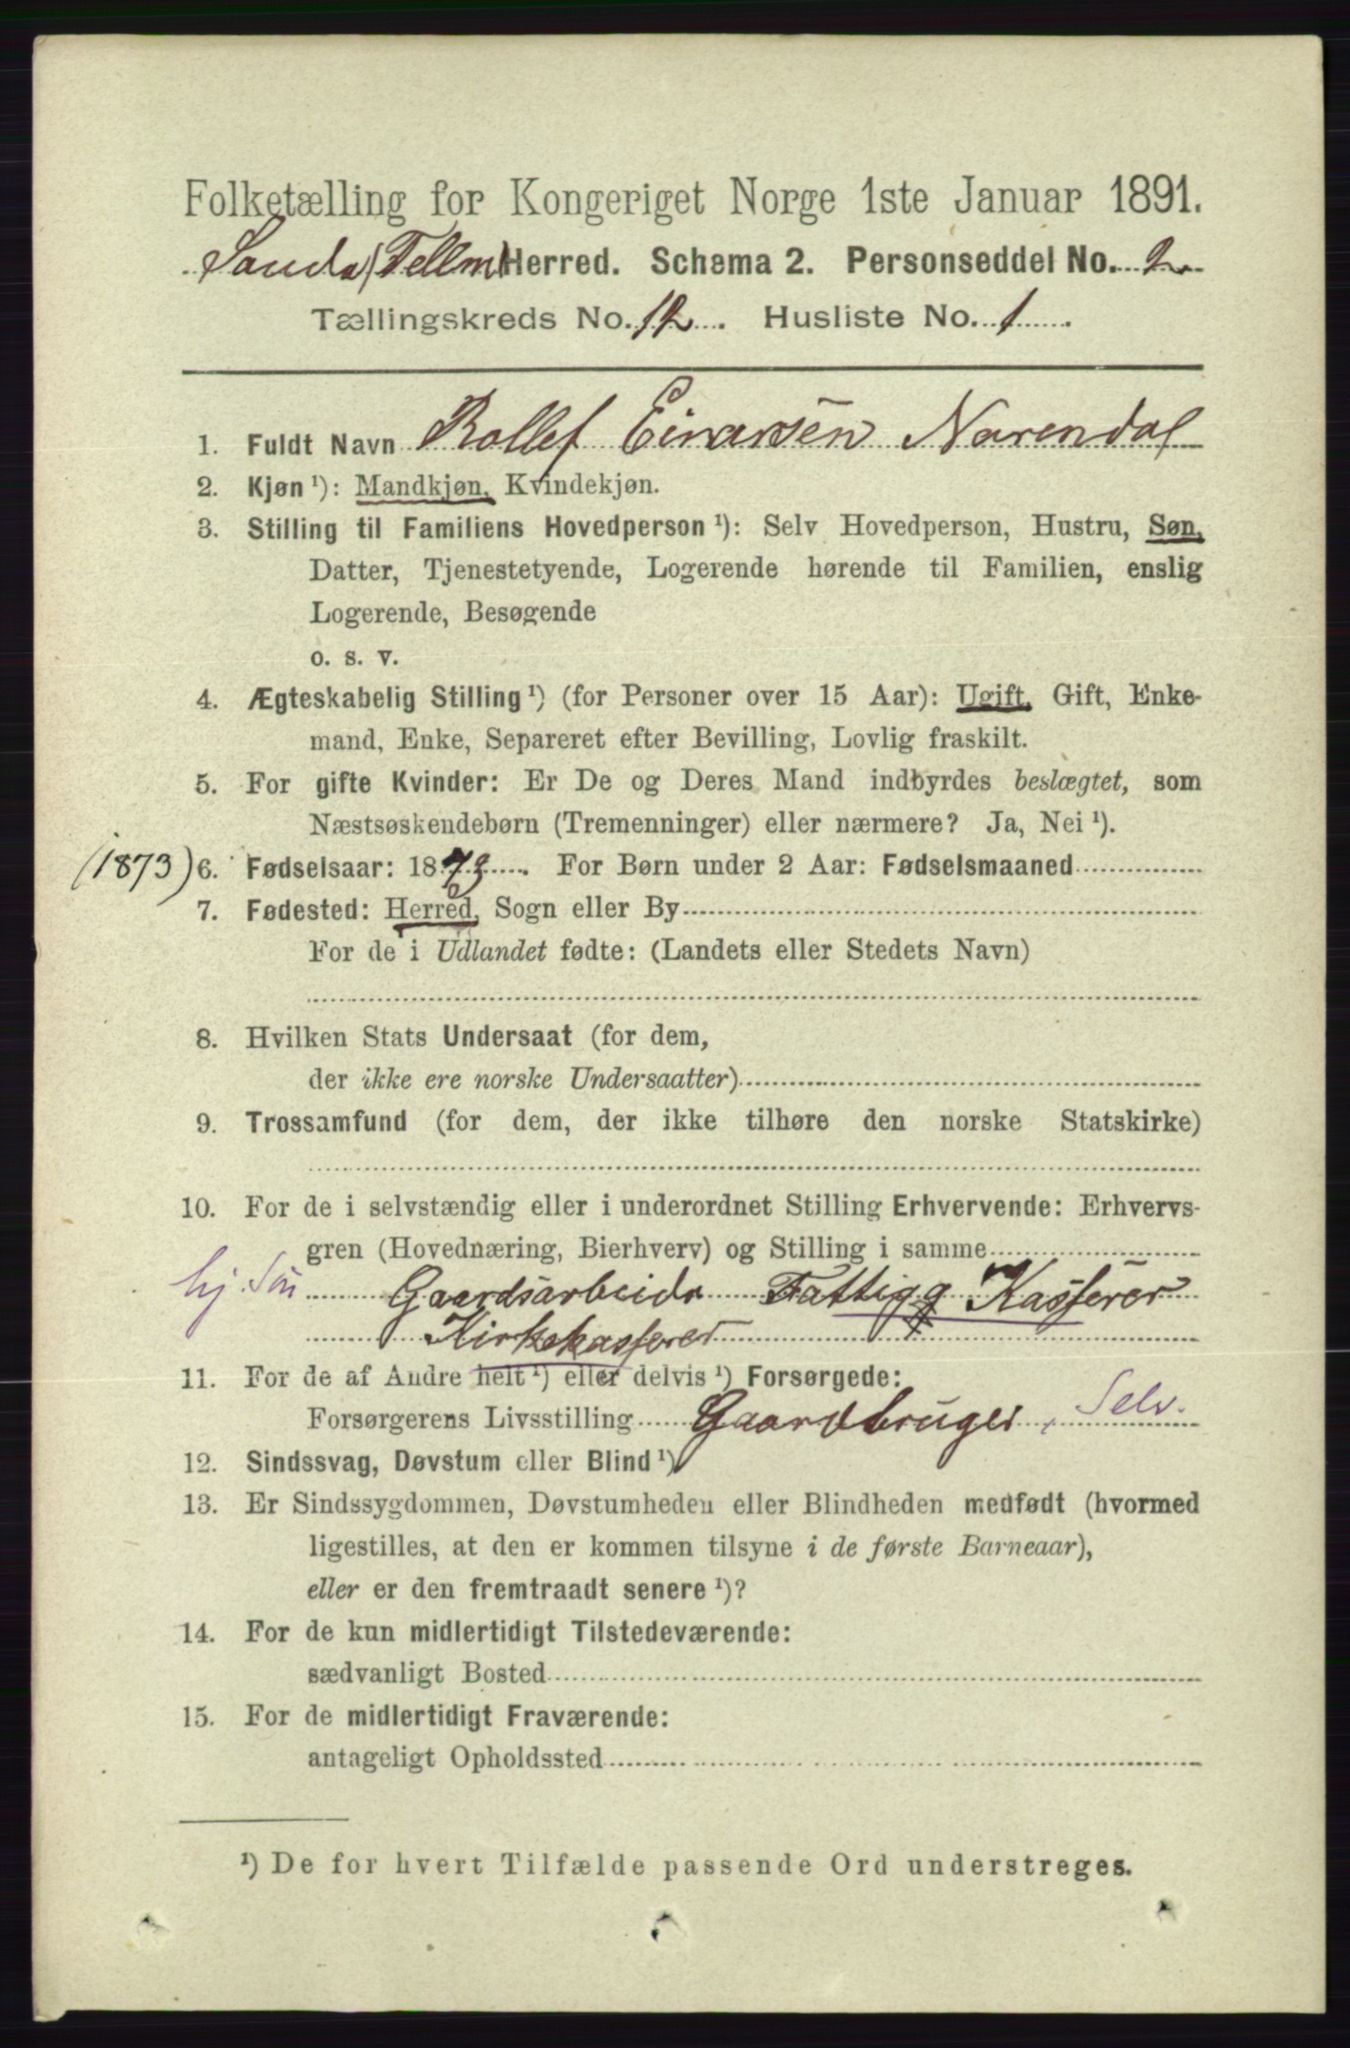 Folketælling for Kongeriget Norge 1ste Januar 1891.
Sauda (Tellm) Herred. Schema 2. Personseddel No. 2
Tællingskreds No. 12. Husliste No. 1.
1. Fuldt Navn Rollef Einarsen Narendal
2. Kjøn ¹): Mandkjøn, Kvindekjøn.
3. Stilling til Familiens Hovedperson ¹): Selv Hovedperson, Hustru, Søn,
Datter, Tjenestetyende, Logerende hørende til Familien, enslig
Logerende, Besøgende
o. s. v.
4. Ægteskabelig Stilling ¹) (for Personer over 15 Aar): Ugift, Gift, Enke-
mand, Enke, Separeret efter Bevilling, Lovlig fraskilt.
5. For gifte Kvinder: Er De og Deres Mand indbyrdes beslægtet, som
Næstsøskendebørn (Tremenninger) eller nærmere? Ja, Nei ¹).
(1873) 6. Fødselsaar: 1873. For Børn under 2 Aar: Fødselsmaaned
7. Fødested: Herred, Sogn eller By
For de i Udlandet fødte: (Landets eller Stedets Navn)
8. Hvilken Stats Undersaat (for dem,
der ikke ere norske Undersaatter)
9. Trossamfund (for dem, der ikke tilhøre den norske Statskirke)
10. For de i selvstændig eller i underordnet Stilling Erhvervende: Erhvervs-
gren (Hovednæring, Bierhverv) og Stilling i samme
hj. Søn Gaardsarbeide Fattig og Kasserer
Kirkekasserer
11. For de af Andre helt ¹) eller delvis ¹) Forsørgede:
Forsørgerens Livsstilling Gaardbruger, Selv.
12. Sindssvag, Døvstum eller Blind ¹)
13. Er Sindssygdommen, Døvstumheden eller Blindheden medfødt (hvormed
ligestilles, at den er kommen tilsyne i de første Barneaar),
eller er den fremtraadt senere ¹)?
14. For de kun midlertidigt Tilstedeværende:
sædvanligt Bosted
15. For de midlertidigt Fraværende:
antageligt Opholdssted
¹) De for hvert Tilfælde passende Ord understreges.